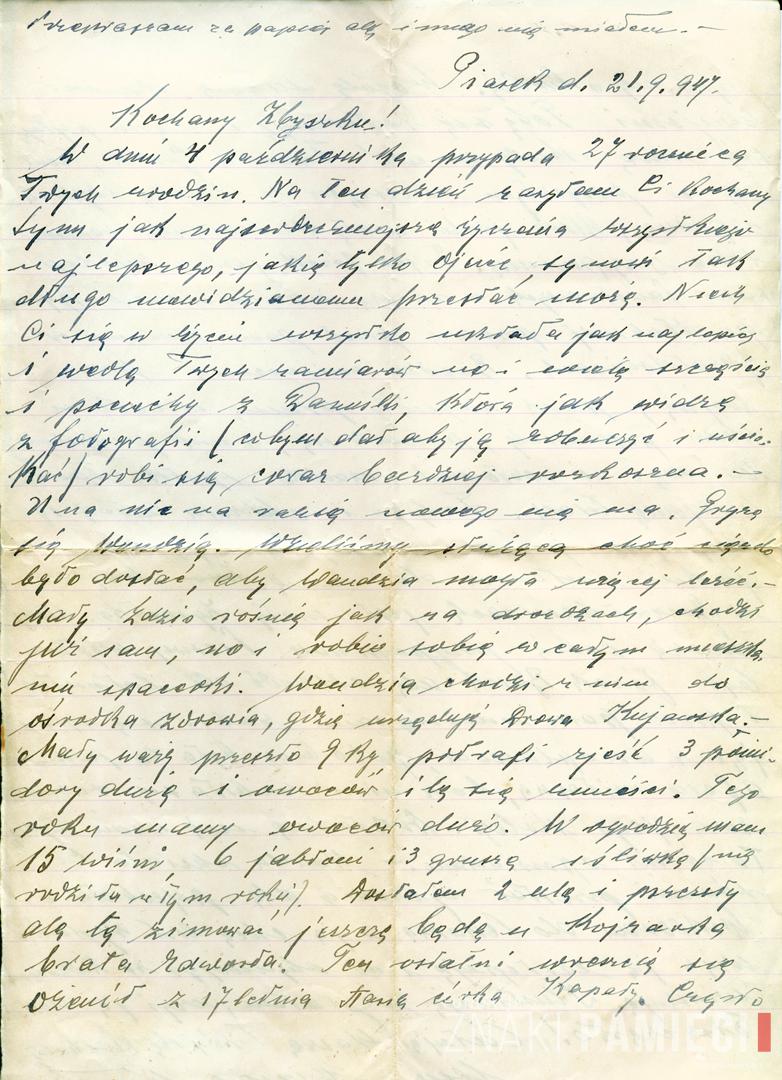 Przepraszam za papier ale innego nie miałem. –
Piasek d. 21.9.947.
Kochany Zbyszku!
W dniu 4 października przypada 27 rocznica
Twych urodzin. Na ten dzień zasyłam Ci Kochany
Synu jak najserdeczniejsze życzenia wszystkiego
najlepszego, jakie tylko Ojciec, synowi tak
długo niewidzianemu przesłać może. Niech
Ci się w życiu wszystko układa jak najlepiej
i wedle Twych zamiarów no i wiele szczęścia
i pociechy z Danuśki, która jak widzę
z fotografii (cobym dał aby ją zobaczyć i uścis-
kać) robi się coraz bardziej rozkoszna. –
U nas nic na razie nowego nie ma. Gryzę
się Wandzią. Wzieliśmy służącą choć ciężko
było dostać, aby Wandzia mogła więcej leżeć. –
Mały Zdzis rośnie jak na drożdżach, chodzi
już sam, no i robi sobie w całym mieszka-
niu spacerki. Wandzia chodzi z nim do
ośrodka zdrowia, gdzie urzęduje Drowa Kujawska. –
Mały waży przeszło 9 kg potrafi zjeść 3 pomi-
dory duże i owoców ile się zmieści. Tego
roku mamy owoców dużo. W ogrodzie mam
15 wiśni, 6 jabłoni i 3 grusze i śliwkę (nie
rodziła w tym roku). Dostałem 2 ule i pszczoły
ale te zimować jeszcze będą u
brata Edwarda. Ten ostatni wreszcie się
ożenił z 17 letnią córką Kapały. Często
ZNAKI PAMIĘCI